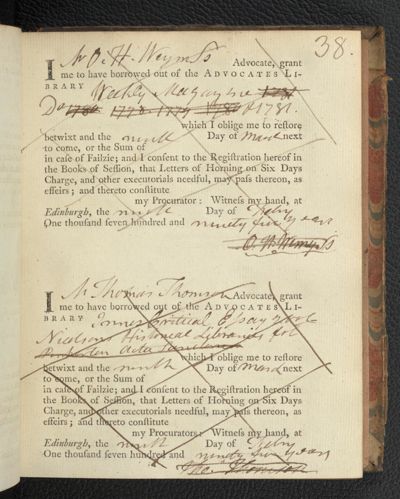 38.
I Mr O: H. Wemyss Advocate, grant
me to have borrowed out of the ADVOCATES LI-
BRARY Weekly Magazine 1781
Do 1780 1778 1779 & 1781.
which I oblige me to reſtore
betwixt and the ninth Day of March next
to come, or the Sum of
in caſe of Failzie; and I conſent to the Regiſtration hereof in
the Books of Seſſion, that Letters of Horning on Six Days
Charge, and other executorials needful, may paſs thereon, as
effeirs; and thereto conſtitute
my Procurator: Witneſs my hand, at
Edinburgh, the ninth Day of Febry
One thouſand ſeven hundred and ninety five years
O. H. Wemyss
I Mr Thomas Thomson Advocate, grant
me to have borrowed out of the ADVOCATES LI-
BRARY Innes Critical Essay 2 vols
Nicolson's Historical Libraries fol.
Acta
which I oblige me to reſtore
betwixt and the ninth Day of March next
to come, or the Sum of
in caſe of Failzie; and I conſent to the Regiſtration hereof in
the Books of Seſſion, that Letters of Horning on Six Days
Charge, and other executorials needful, may paſs thereon, as
effeirs; and thereto conſtitute
my Procurator: Witneſs my hand, at
Edinburgh, the ninth Day of Febry
One thouſand ſeven hundred and ninety five years
Tho: Thomson